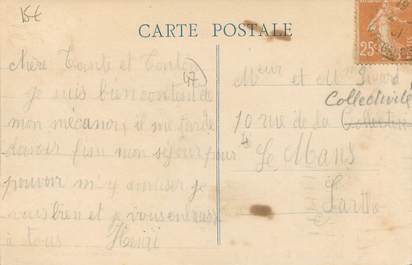 15€
CARTE POSTALE
25c
47
Chère Tante et Tonton
je suis bien content de
mon mécano, il me tarde
davoir fini mon séjour pour
pouvoir m'y amuser je
vais bien et je vous embrasse
à tous Henri
Meur et Mme
Collectivité
10 rue de la Collective
4 Le Mans
Sarthe